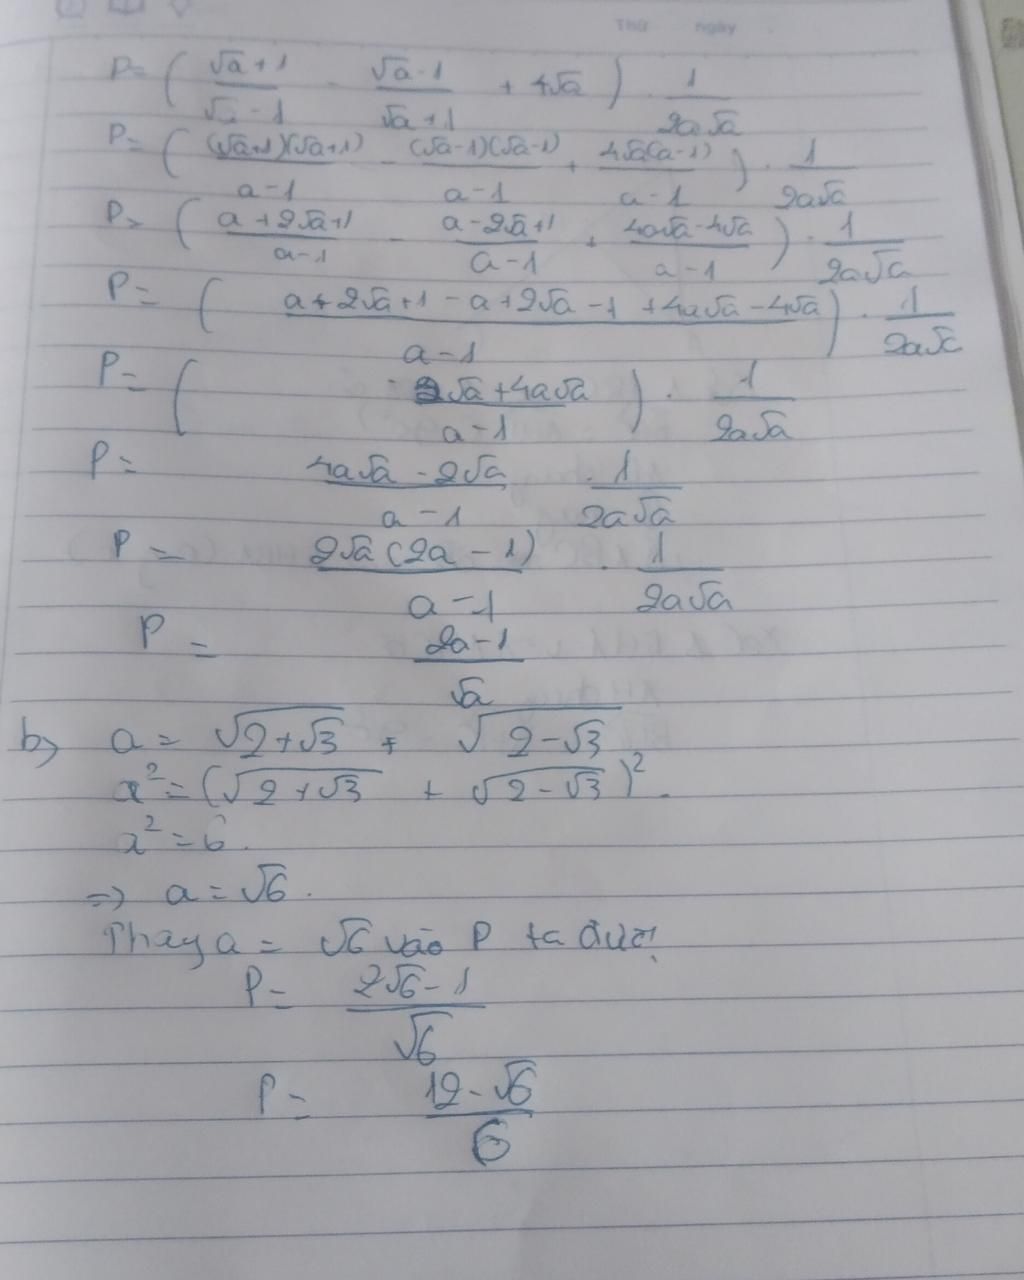 Thứ ngày
P= ( (√a+1)/(√a-1) - (√a-1)/(√a+1) + 4√a ) . 1/(2a√a)
P= ( (√a+1)(√a+1)/(a-1) - (√a-1)(√a-1)/(a-1) + 4√a(a-1)/(a-1) ) . 1/(2a√a)
P= ( (a+2√a+1)/(a-1) - (a-2√a+1)/(a-1) + (4a√a-4√a)/(a-1) ) . 1/(2a√a)
P= ( (a+2√a+1-a+2√a-1+4a√a-4√a)/(a-1) ) . 1/(2a√a)
P= ( (2√a+4a√a)/(a-1) ) . 1/(2a√a)
P= (4a√a-2√a)/(a-1) . 1/(2a√a)
P= 2√a(2a-1)/(a-1) . 1/(2a√a)
P= (2a-1)/√a
b) a= √(2+√3) + √(2-√3)
a²=(√(2+√3) + √(2-√3))².
a²=6.
=> a=√6.
Thay a= √6 vào P ta được
P= (2√6-1)/√6
P= (12-√6)/6